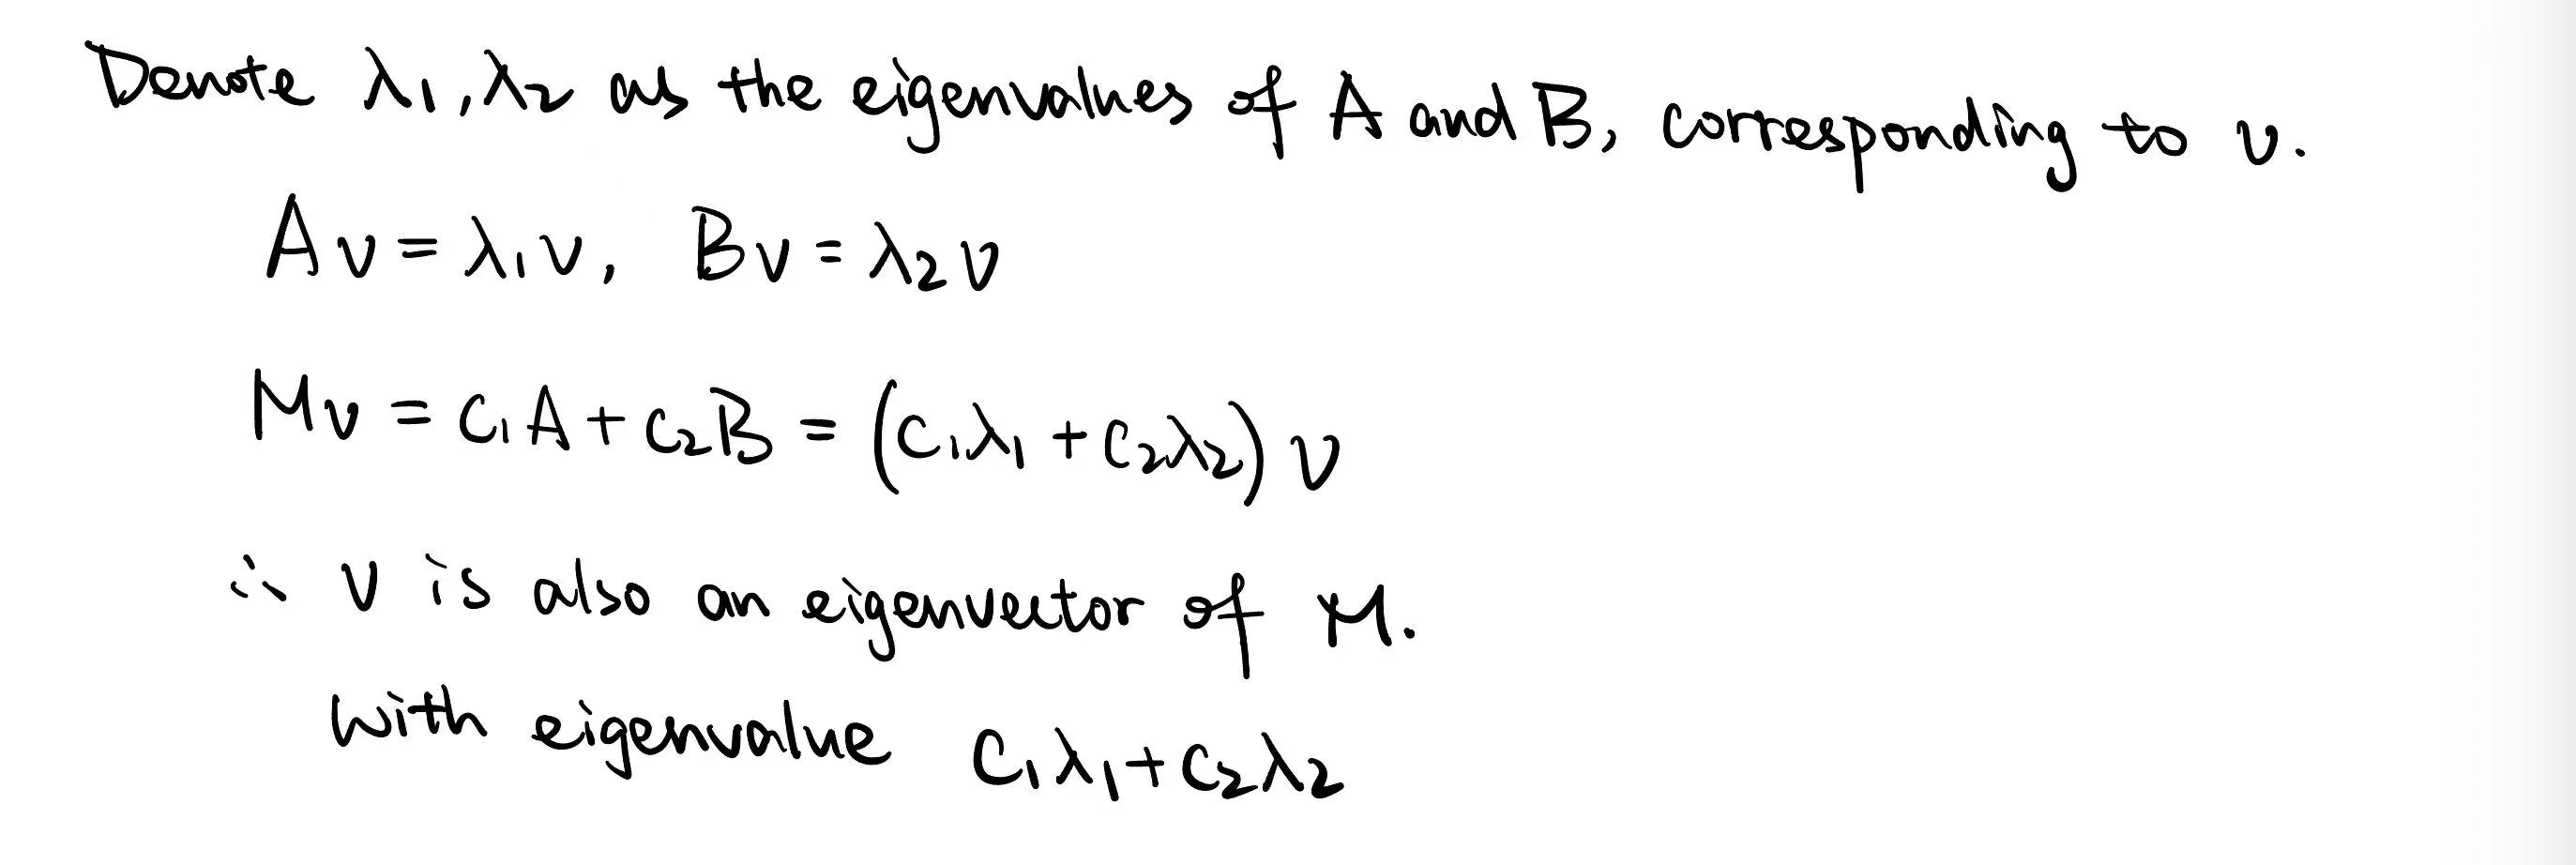 Denote λ1, λ2 as the eigenvalues of A and B, corresponding to v.
Av = λ1v, Bv = λ2v
Mv = c1A + c2B = (c1λ1 + c2λ2) v
∴ v is also an eigenvector of M.
with eigenvalue c1λ1 + c2λ2